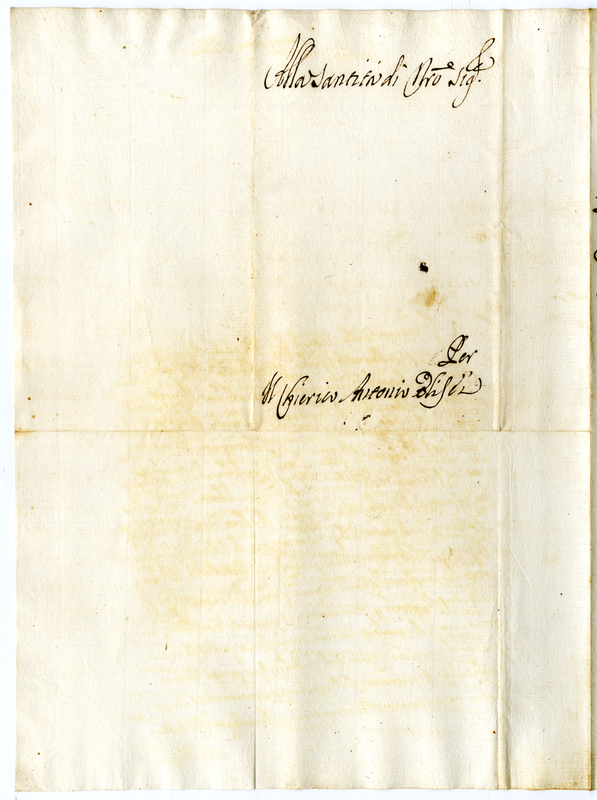 Alla Santità di Nro Sige
Per
Il Chierico Antonio